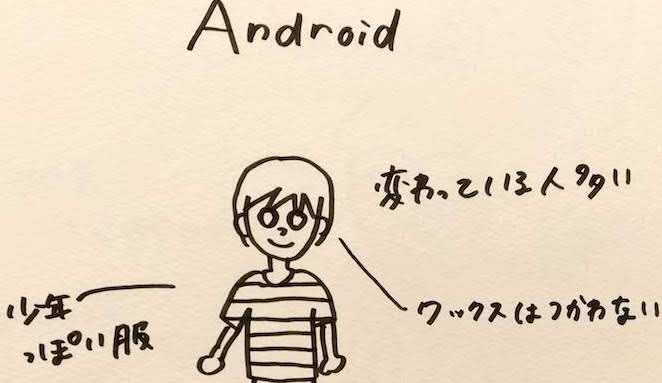 Android
変わっている人多い
ワックスはつかわない
少年
っぽい服